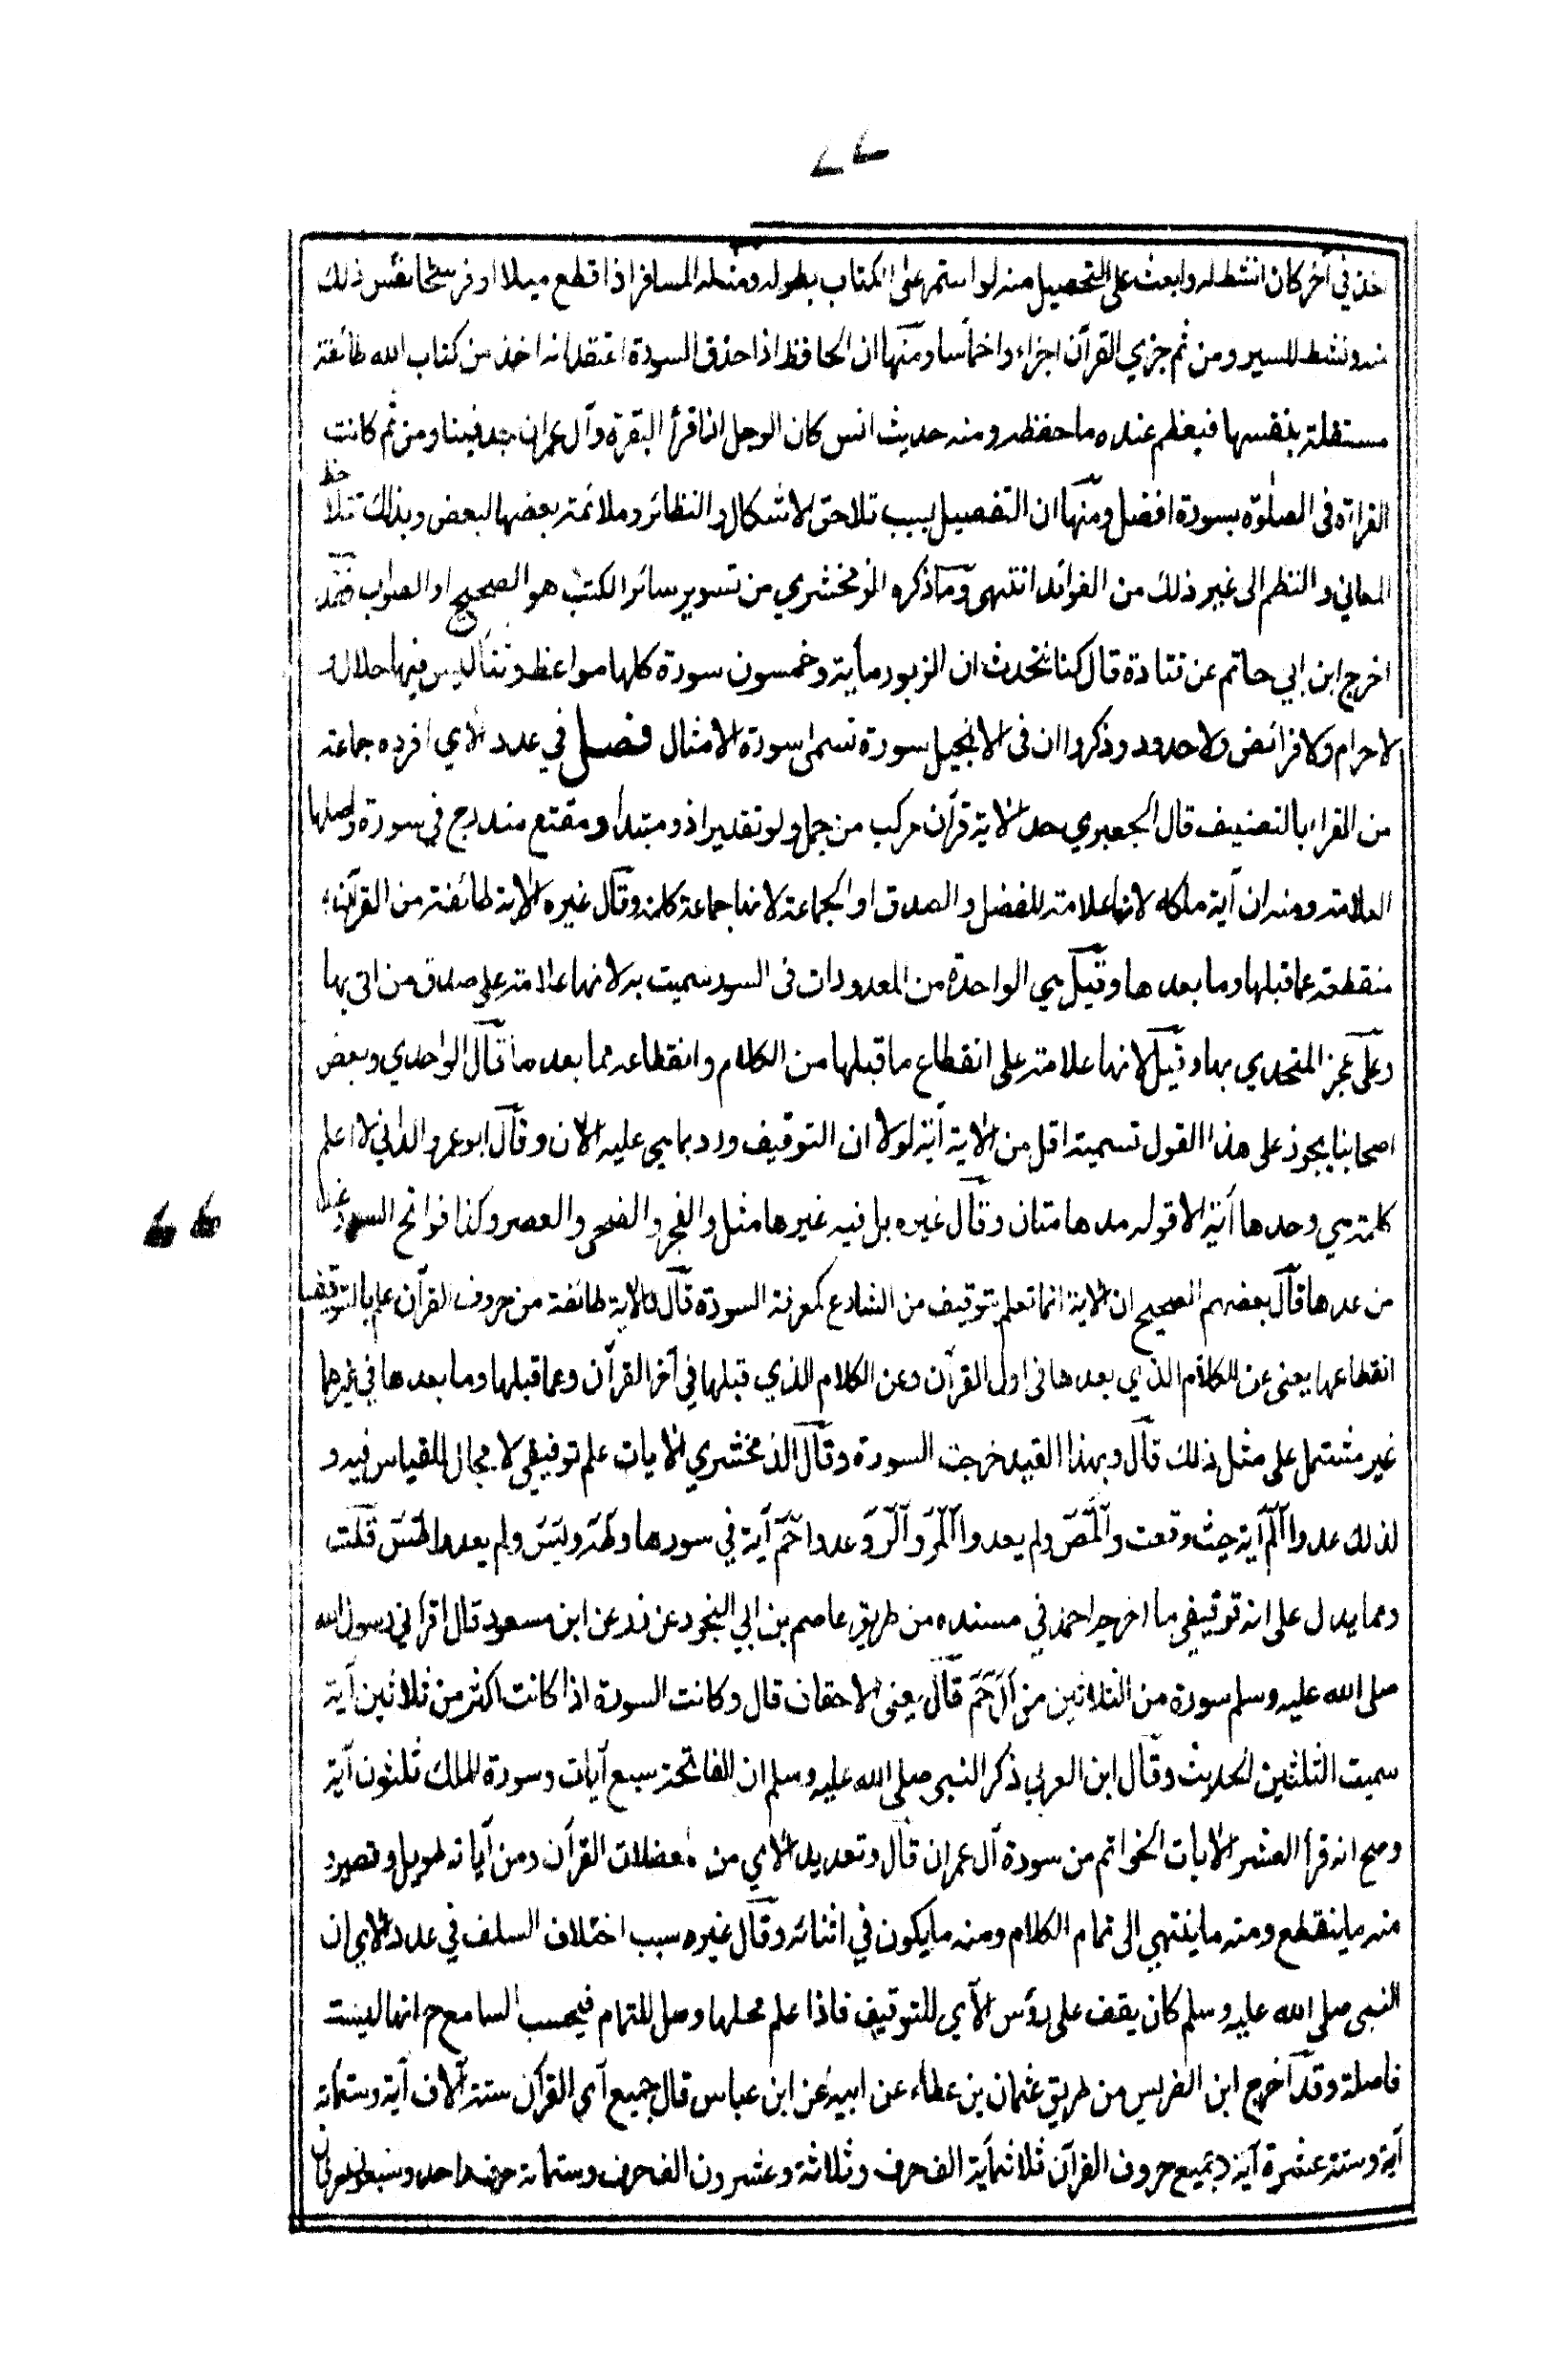 ٧٧
اخذ في آخر كان انشط له وابعث على التحصيل منه لو استمر على الكتاب بطوله ومثله المسافر اذا قطع ميلا او فرسخا نفس ذلك
منه ونشط للسير ومن ثم جزي القرآن اجزاء واخماسا ومنها ان الحافظ اذا حذق السورة اعتقد انه اخذ من كتاب الله طائفة
مستقلة بنفسها فيعظم عنده ما حفظه ومنه حديث انس كان الرجل اذا قرأ البقرة وآل عمران جد فينا ومن ثم كانت
القراءة فى الصلوة بسورة افضل ومنها ان التفصيل بسبب تلاحق الاشكال والنظائر وملائمة بعضها لبعض وبذلك تتلاحظ
المعاني والنظم الى غير ذلك من الفوائد انتهى وما ذكره الزمخشري من تسوير سائر الكتب هو الصحيح او الصواب فقد
اخرج ابن ابي حاتم عن قتادة قال كنا نتحدث ان الزبور مأية وخمسون سورة كلها مواعظ وثناء ليس فيها حلال و
لا حرام ولا فرائض ولا حدود وذكروا ان فى الانجيل سورة تسمى سورة الامثال فصل في عدد الآي افرده جماعة
من القراء بالتصنيف قال الجعبري حد الآية قرآن مركب من جمل ولو تقديرا ذو مبتدأ ومقتع مندرج في سورة واصلها
العلامة ومنه ان آية ملكه لانها علامة للفضل والصدق او الجماعة لانها جماعة كلمة وقال غيره الآية طائفة من القرآن
منقطعة عما قبلها وما بعدها وقيل هي الواحدة من المعدودات فى السور سميت به لانها علامة على صدق من اتى بها
وعلى عجز المتحدي بها وقيل لانها علامة على انقطاع ما قبلها من الكلام وانقطاعه مما بعدها قال الواحدي وبعض
اصحابنا يجوز على هذا القول تسمية اقل من الآية آية لولا ان التوقيف ورد بما هي عليه الآن وقال ابو عمرو الداني لا اعلم
كلمة هي وحدها آية الا قوله مدهامتان وقال غيره بل فيه غيرها مثل والفجر والضحى والعصر وكذا فواتح السور عند
من عدها قال بعضهم الصحيح ان الآية انما تعلم بتوقيف من الشارع كمعرفة السورة قال فالآية طائفة من حروف القرآن علم بالتوقيف
انقطاعها يعنى عن الكلام الذي بعدها فى اول القرآن وعن الكلام الذي قبلها في آخر القرآن وعما قبلها وما بعدها في غيرهما
غير مشتمل على مثل ذلك قال وبهذا القيد خرجت السورة وقال الزمخشري الآيات علم توقيفى لا مجال للقياس فيه و
لذلك عدوا الم آية حيث وقعت والمص ولم يعدوا المر والر وعدوا حم آية في سورها وطه ويس ولم يعدوا طس قلت
ومما يدل على انه توقيفي ما اخرجه احمد في مسنده من طريق عاصم بن ابي النجود عن زر عن ابن مسعود قال اقرأني رسول الله
صلى الله عليه وسلم سورة من الثلاثين من آل حم قال يعنى الاحقاف قال وكانت السورة اذا كانت اكثر من ثلاثين آية
سميت الثلثين الحديث وقال ابن العربي ذكر النبى صلى الله عليه وسلم ان الفاتحة سبع آيات وسورة الملك ثلثون آية
وصح انه قرأ العشر الآيات الخواتم من سورة آل عمران قال وتعديد الآي من معضلات القرآن ومن آياته طويل وقصير و
منه ما ينقطع ومنه ما ينتهي الى تمام الكلام ومنه ما يكون في اثنائه وقال غيره سبب اختلاف السلف في عدد الآي ان
النبى صلى الله عليه وسلم كان يقف على رؤس الآي للتوقيف فاذا علم محلها وصل للتمام فيحسب السامع ح انها ليست
فاصلة وقد اخرج ابن الضريس من طريق عثمان بن عطاء عن ابيه عن ابن عباس قال جميع آي القرآن ستة آلاف آية وستمائة
آية وستة عشرة آية وجميع حروف القرآن ثلاثمأية الف حرف وثلاثة وعشرون الف حرف وستمائة حرف واحد وسبعون حرفا